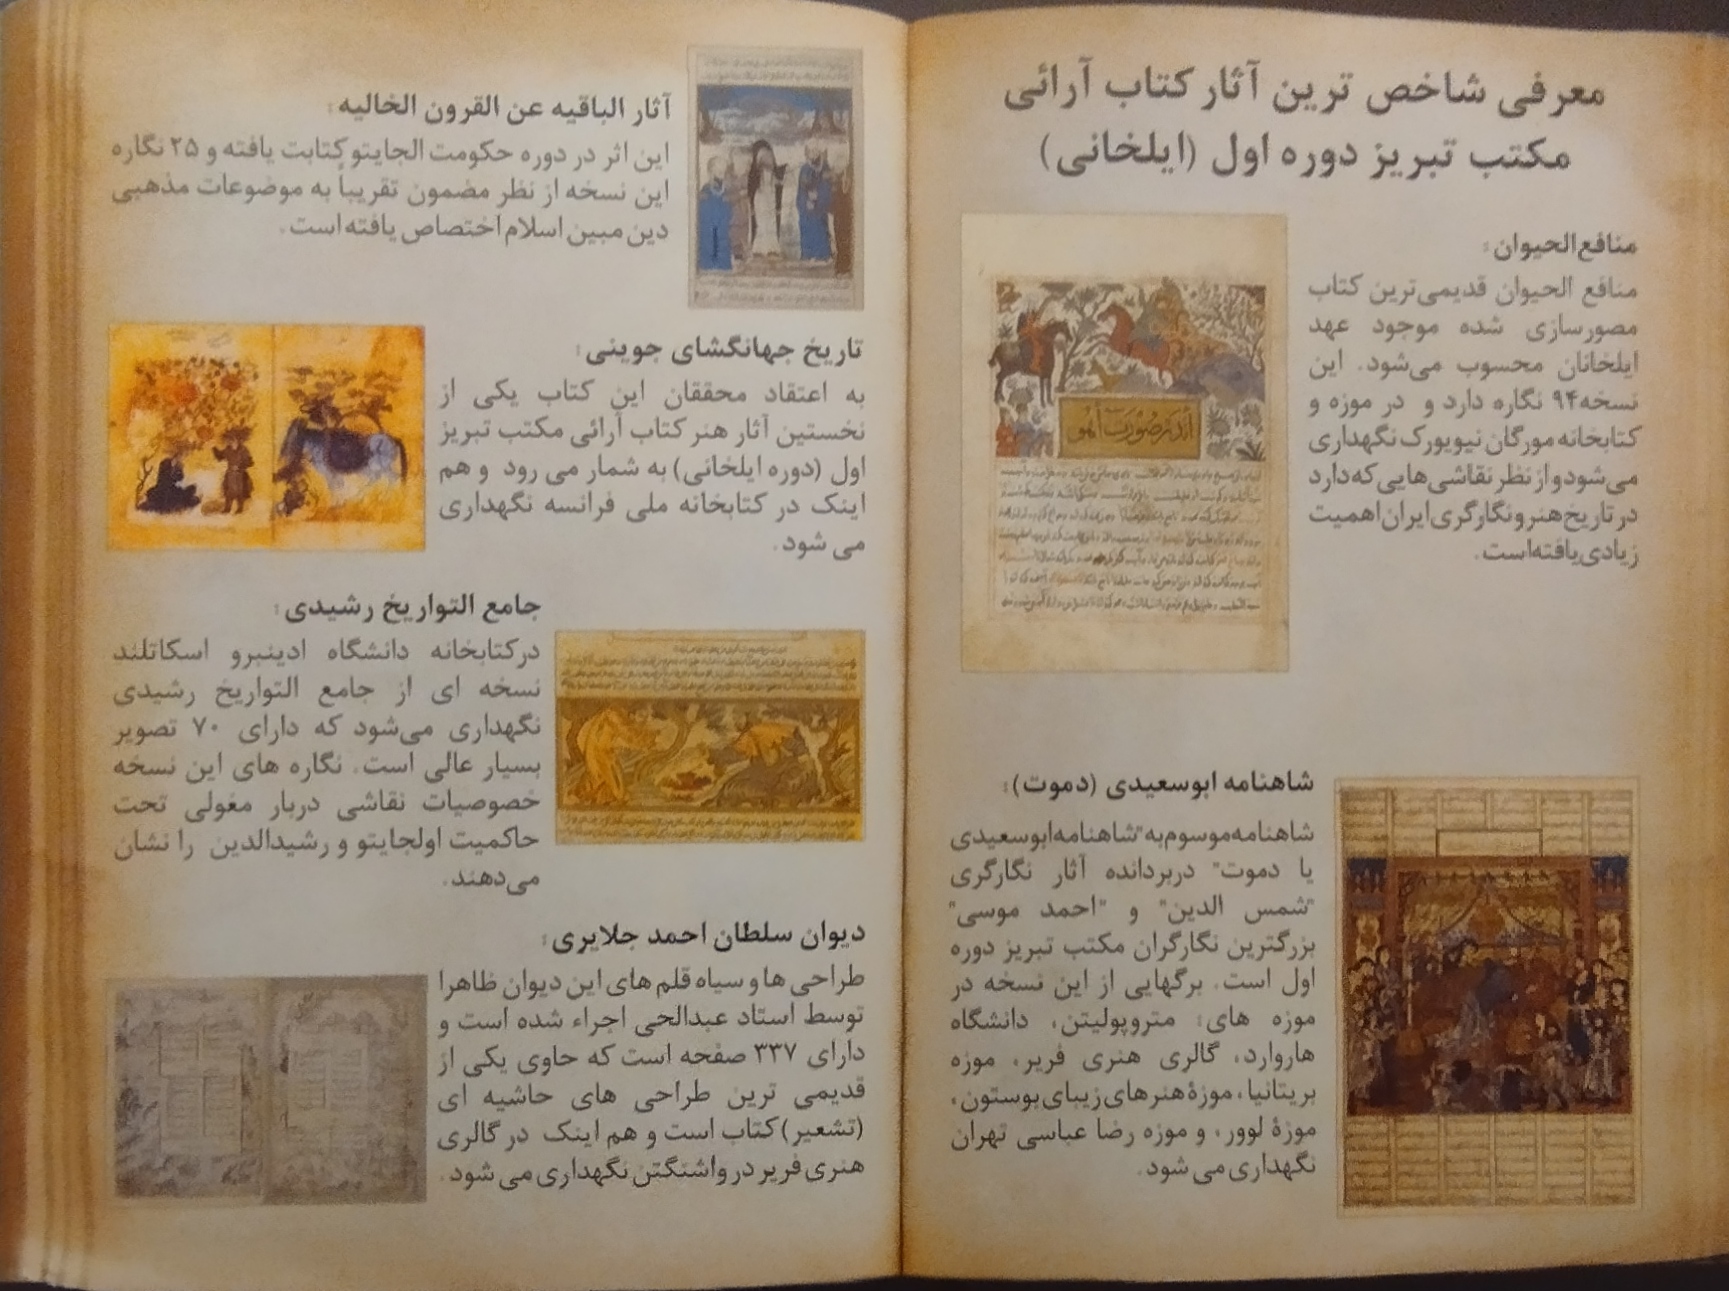 معرفی شاخص ترین آثار کتاب آرائی
مکتب تبریز دوره اول (ایلخانی)
منافع‌الحیوان:
منافع الحیوان قدیمی‌ترین کتاب
مصورسازی شده موجود عهد
ایلخانان محسوب می‌شود. این
نسخه ۹۴ نگاره دارد و در موزه و
کتابخانه مورگان نیویورک نگهداری
می‌شود و از نظر نقاشی‌هایی که دارد
در تاریخ هنر و نگارگری ایران اهمیت
زیادی یافته است.
اندر صورت آهو
شاهنامه ابوسعیدی (دموت):
شاهنامه موسوم به "شاهنامه ابوسعیدی
یا دموت" دربردانده آثار نگارگری
"شمس الدین" و "احمد موسی"
بزرگترین نگارگران مکتب تبریز دوره
اول است. برگهایی از این نسخه در
موزه های: متروپولیتن، دانشگاه
هاروارد، گالری هنری فریر، موزه
بریتانیا، موزهٔ هنرهای زیبای بوستون،
موزهٔ لوور، و موزه رضا عباسی تهران
نگهداری می شود.
آثار الباقیه عن القرون الخالیه:
این اثر در دوره حکومت الجایتو کتابت یافته و ۲۵ نگاره
این نسخه از نظر مضمون تقریباً به موضوعات مذهبی
دین مبین اسلام اختصاص یافته است.
تاریخ جهانگشای جوینی:
به اعتقاد محققان این کتاب یکی از
نخستین آثار هنر کتاب آرائی مکتب تبریز
اول (دوره ایلخانی) به شمار می رود و هم
اینک در کتابخانه ملی فرانسه نگهداری
می شود.
جامع التواریخ رشیدی:
درکتابخانه دانشگاه ادینبرو اسکاتلند
نسخه ای از جامع التواریخ رشیدی
نگهداری می‌شود که دارای ۷۰ تصویر
بسیار عالی است. نگاره های این نسخه
خصوصیات نقاشی دربار مغولی تحت
حاکمیت اولجایتو و رشیدالدین را نشان
می‌دهند.
دیوان سلطان احمد جلایری:
طراحی ها و سیاه قلم های این دیوان ظاهرا
توسط استاد عبدالحی اجراء شده است و
دارای ۳۳۷ صفحه است که حاوی یکی از
قدیمی ترین طراحی های حاشیه ای
(تشعیر) کتاب است و هم اینک در گالری
هنری فریر در واشنگتن نگهداری می شود.